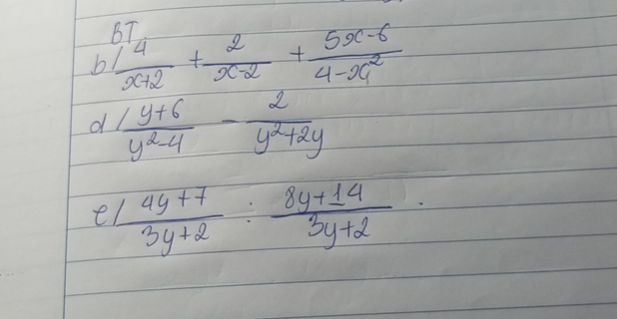 BT
b/ 4/(x+2) + 2/(x-2) + (5x-6)/(4-x²)
d/ (y+6)/(y²-4) - 2/(y²+2y)
e/ (4y+7)/(3y+2) : (8y+14)/(3y+2).